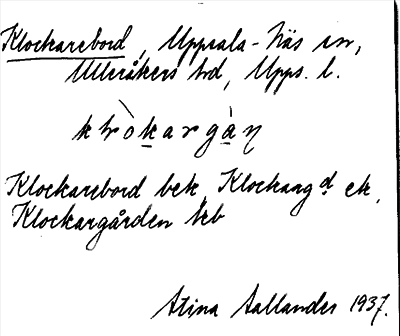 Klockarebord, Uppsala-Näs sn,
Ulleråkers hd, Upps. l.
klòkargàn
Klockarebord bek, Klockarg<sup>d</sup> ek,
Klockargården hb
Stina Sallander 1937.